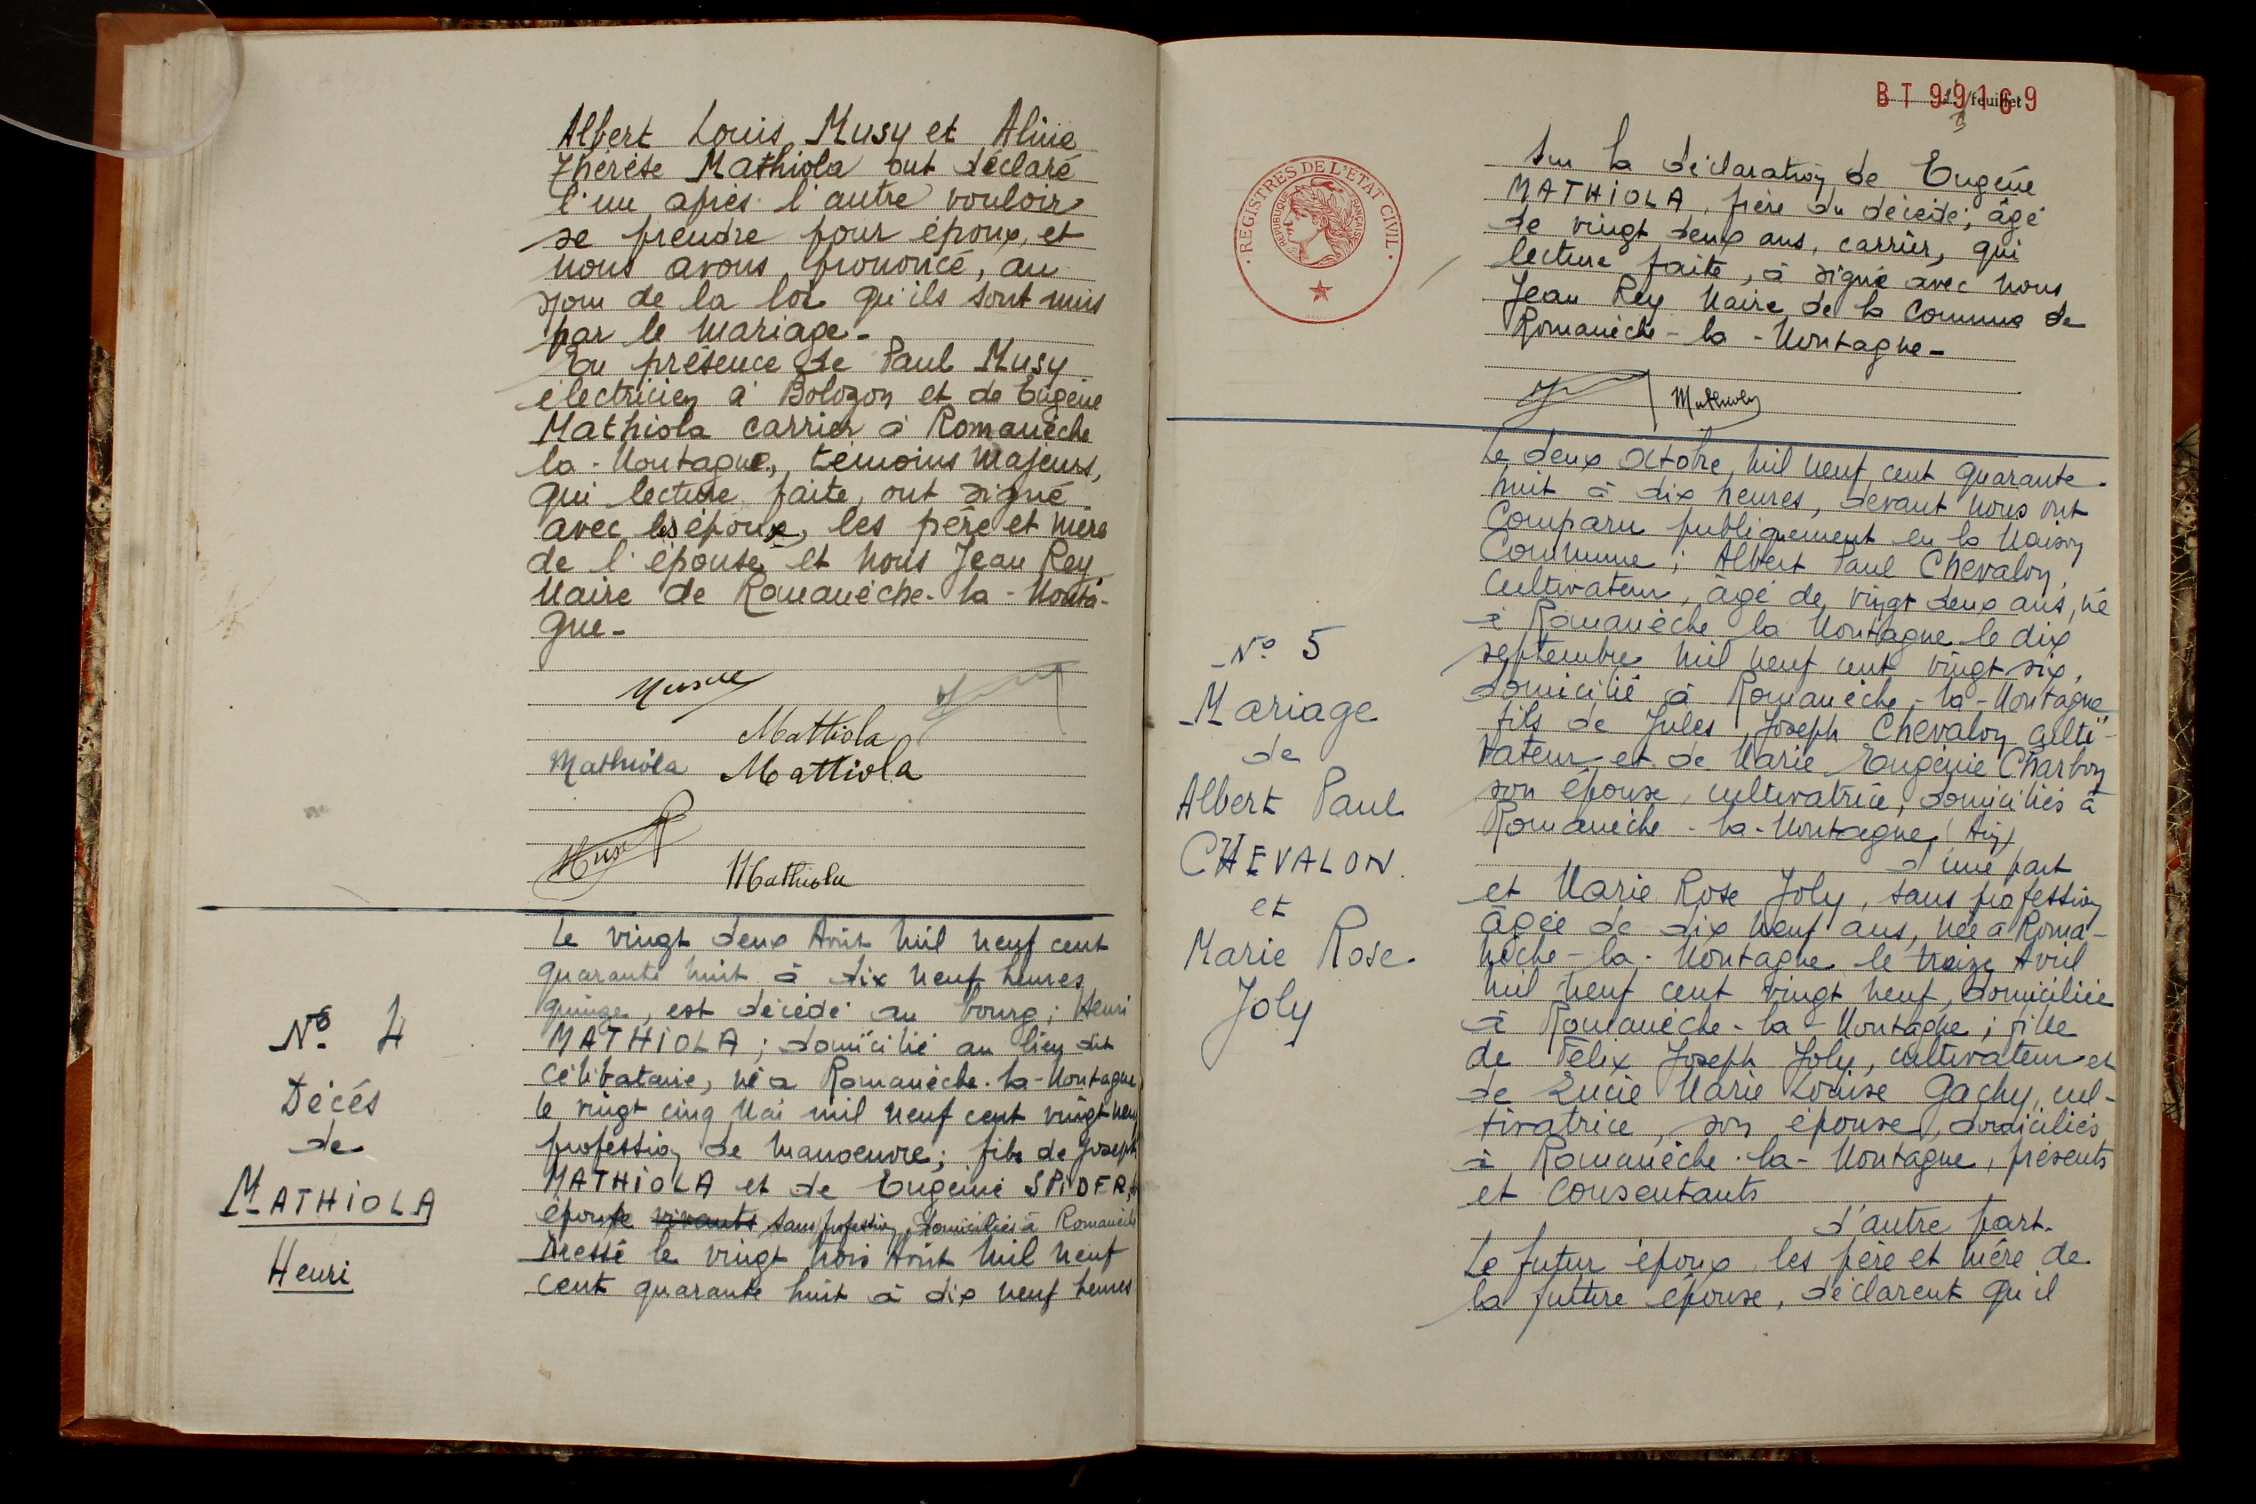 Albert Louis Musy et Aline
Thérèse Mathiola ont déclaré
l'un après l'autre vouloir
se prendre pour époux, et
nous avons, prononcé, au
nom de la loi qu'ils sont unis
par le mariage.
En présence de Paul Musy
électricien à Bolozon et de Eugène
Mathiola carrier à Romanèche
la-Montagne, témoins majeurs,
qui lecture faite, ont signé
avec les époux, les père et mère
de l'épouse et nous Jean Rey
Maire de Romanèche-la-Monta-
gne-
Mattiola
Mathiola Mattiola
Mathiola
N° 4
Décés
de
MATHIOLA
Henri
Le vingt deux Août mil neuf cent
quarante huit à dix neuf heures
quinze, est décédé au bourg; Henri
MATHIOLA; domicilié au lieu dit
célibataire, né a Romanèche-la-Montagne
le vingt cinq Mai mil neuf cent vingt neuf
profession de manoeuvre; fils de Joseph
MATHIOLA et de Eugénie SPIDER,
épouse vivants sans profession, domiciliés à Romanèche
Dressé le vingt trois Août mil neuf
cent quarante huit à dix neuf heures
BT 99169
feuillet
REGISTRES DE L'ETAT CIVIL
REPUBLIQUE FRANÇAISE
sur la déclaration de Eugène
MATHIOLA, frère du décédé; âgé
de vingt deux ans, carrier, qui
lecture faite, à signé avec nous
Jean Rey Maire de la Commune de
Romanèche-la-Montagne-
Mathiola
N° 5
Mariage
de
Albert Paul
CHEVALON
et
Marie Rose
Joly
Le deux Octobre mil neuf cent quarante
huit à dix heures, devant nous ont
Comparu publiquement en la Maison
Commune; Albert Paul Chevalon,
cultivateur, âgé de vingt deux ans, né
à Romanèche la Montagne le dix
septembre mil neuf cent vingt six,
domicilié à Romanèche-la-Montagne
fils de Jules Joseph Chevalon culti-
vateur et de Marie Eugénie Charbon
son épouse, cultivatrice, domiciliés à
Romanèche-la-Montagne (Ain)
d'une part
et Marie Rose Joly, sans profession
âgée de dix neuf ans, née à Roma-
nèche-la-Montagne le treize Avril
mil neuf cent vingt neuf, domiciliée
à Romanèche-la-Montagne; fille
de Félix Joseph Joly, cultivateur et
de Lucie Marie Louise Gachy, cul-
tivatrice, son épouse, domiciliés
à Romanèche-la-Montagne, présents
et consentants
d'autre part.
Le futur époux, les père et mère de
la future épouse, déclarent qu'il